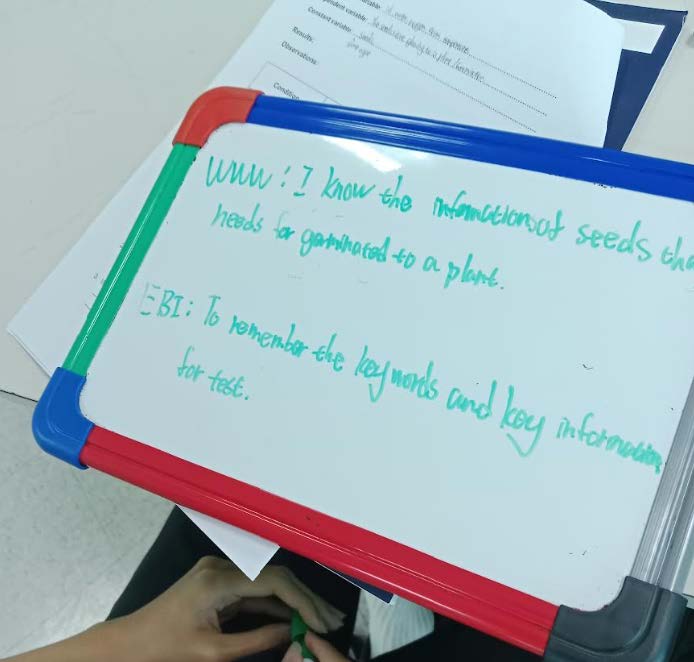 Constant variable:
Results:
Observations:
Condition
WWW: I know the informationsof seeds tha
needs for germinated to a plant.
EBI: To remember the key words and key information
for test.